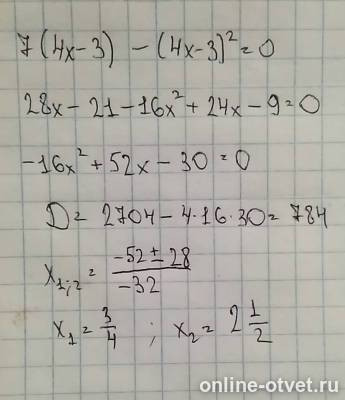 7(4x-3) - (4x-3)²=0
28x - 21 - 16x² + 24x - 9=0
-16x² + 52x - 30 = 0
D = 2704 - 4·16·30 = 784
x₁;₂ = (-52 ± 28)/(-32)
x₁ = 3/4 ; x₂ = 2 1/2
online-otvet.ru